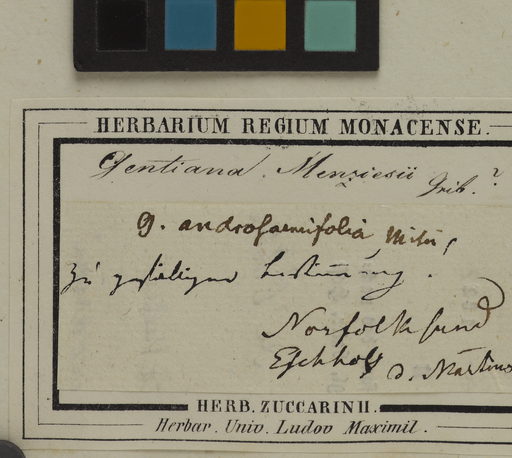 HERBARIUM REGIUM MONACENSE.
Gentiana. Menziesii Grib.?
G. androsaemifolia mihi,
zu gefälligen Bestimmung.
Norfolk sund
Eschholz d. Martius
HERB. ZUCCARINII.
Herbar. Univ. Ludov Maximil.